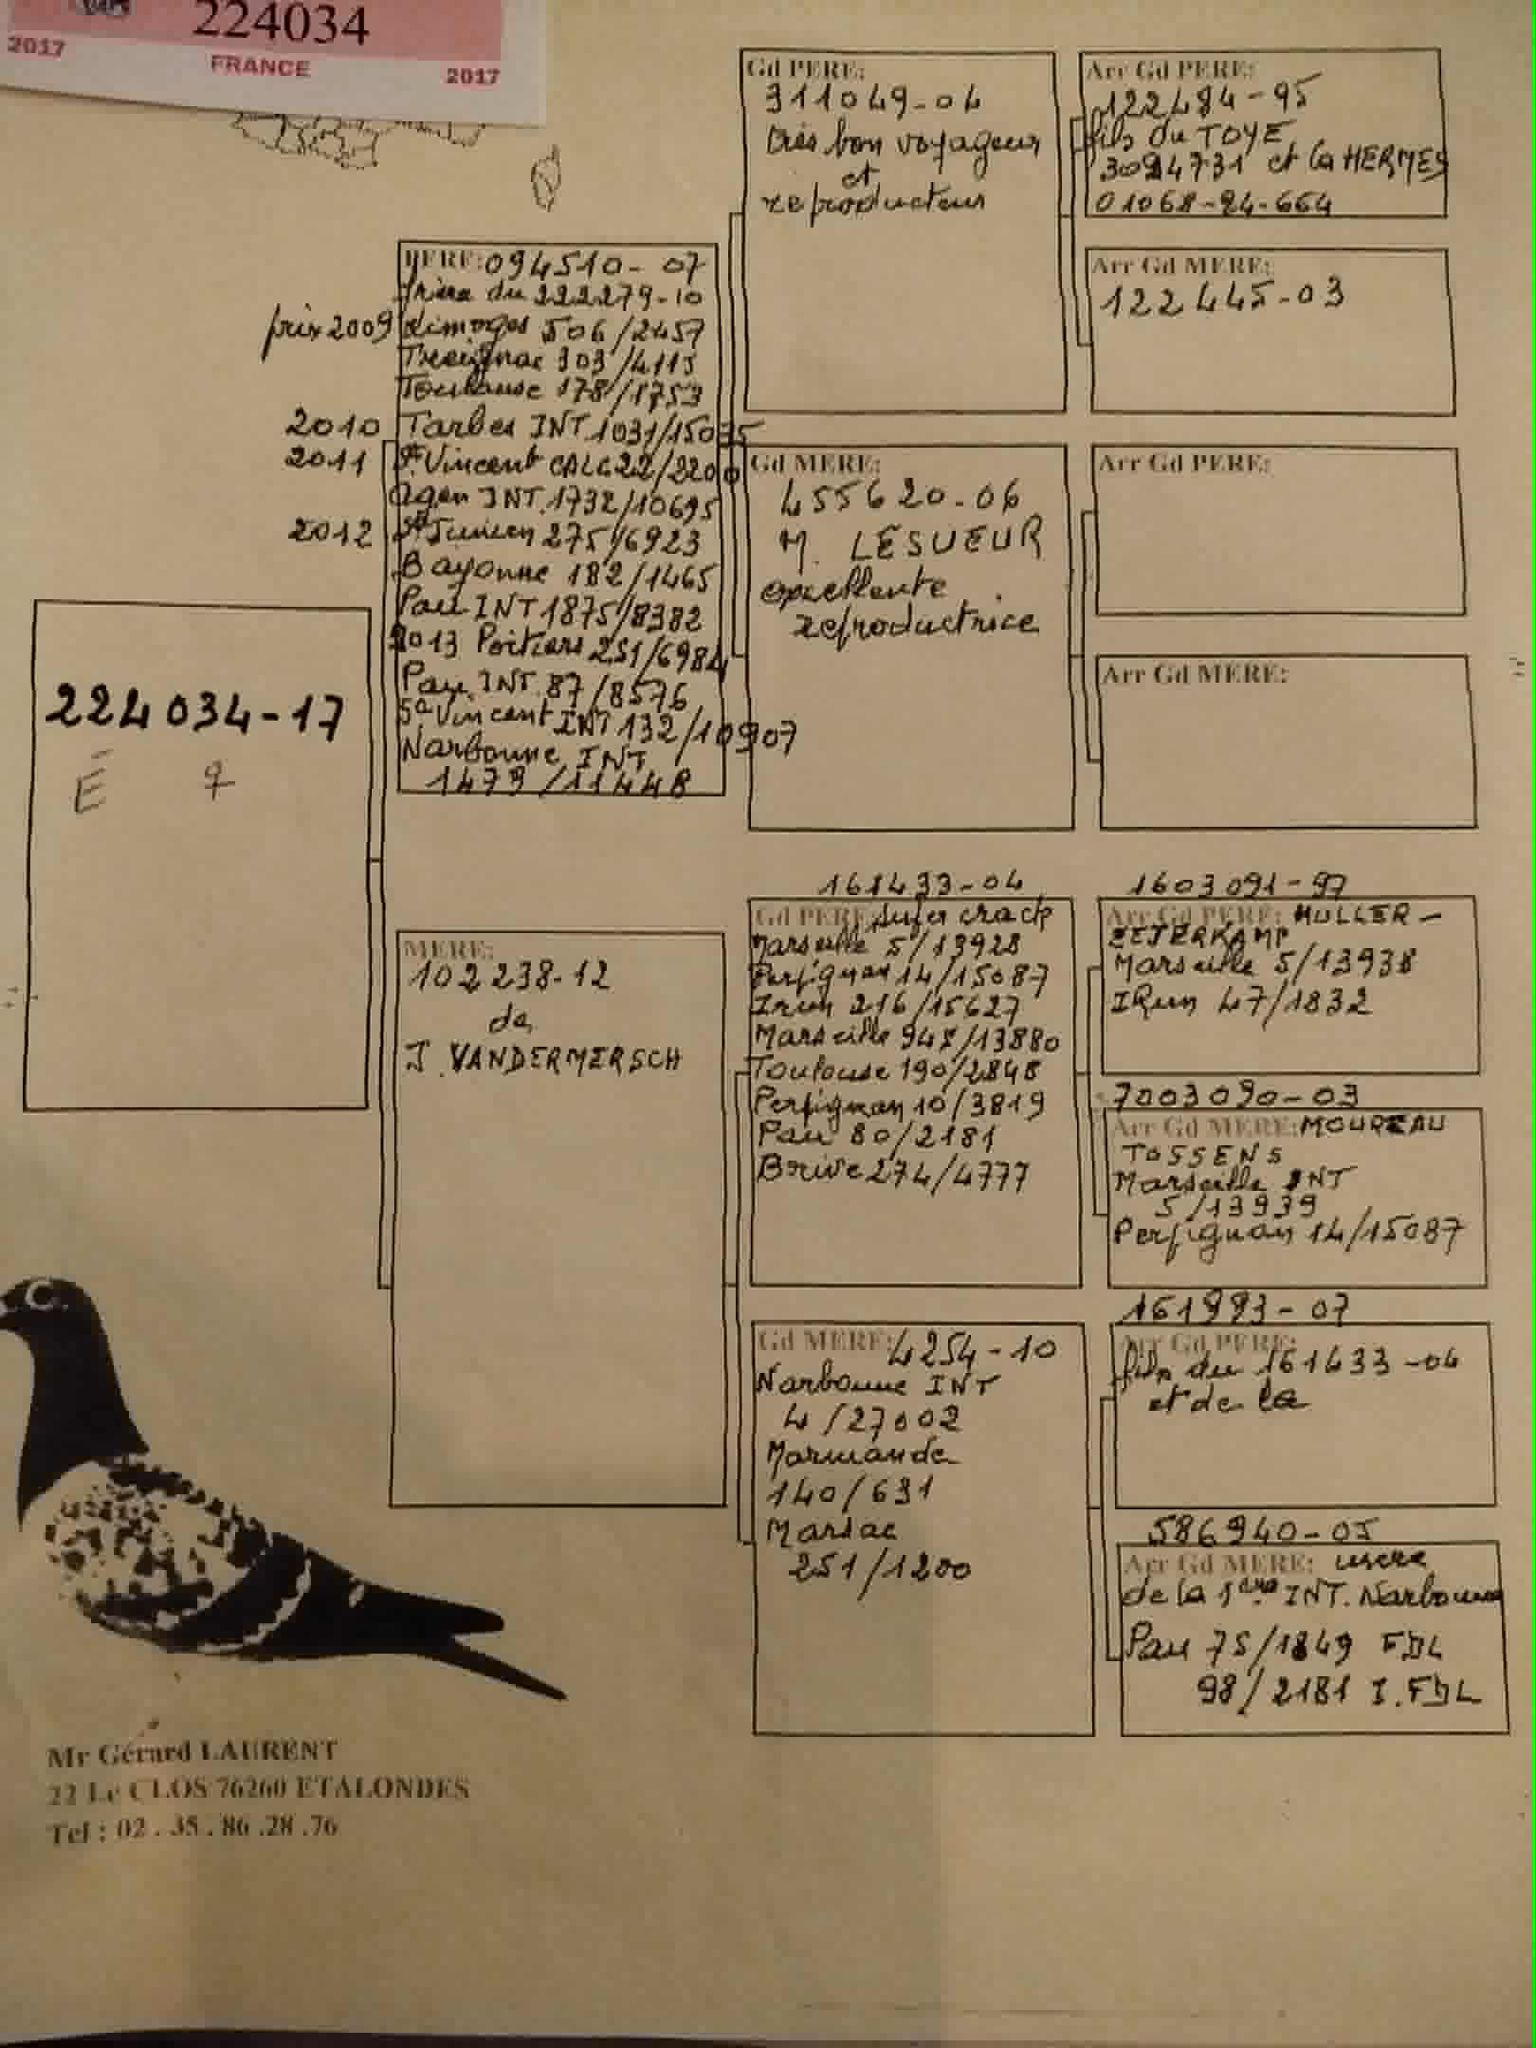 224034
2017
FRANCE
2017
224034-17
E ♀
PERE: 094510-07
frère du 222279-10
prix 2009 Limoges 506/2457
Treignac 303/4115
Toulouse 178/1753
2010 Tarbes INT 1031/15035
2011 St Vincent CALC 22/2200
Agen INT. 1732/10695
2012 St Junien 275/6923
Bayonne 182/1465
Pau INT 1875/8382
2013 Poitiers 251/6984
Pau INT. 87/8576
St Vincent INT 132/10907
Narbonne INT
1473/11448
MERE:
102238-12
de
J. VANDERMERSCH
Gd PERE:
311049-04
très bon voyageur
et
reproducteur
Gd MERE:
455620-06
M. LESUEUR
excellente
reproductrice
161433-04
Gd PERE: super crack
Marseille 5/13928
Perpignan 14/15087
Irun 216/15627
Marseille 948/13880
Toulouse 190/2848
Perpignan 10/3819
Pau 80/2181
Brive 274/4777
Gd MERE: 4254-10
Narbonne INT
4/27002
Marmande
140/631
Marsac
251/1200
Arr Gd PERE:
122484-95
fils du TOYE
3094731 et la HERMES
01068-94-664
Arr Gd MERE:
122445-03
Arr Gd PERE:
Arr Gd MERE:
1603091-97
Arr Gd PERE: MULLER-
ZEJERKAMP
Marseille 5/13938
IRun 47/1832
7003090-03
Arr Gd MERE: MOUREAU
TOSSENS
Marseille INT
5/13939
Perpignan 14/15087
161993-07
Arr Gd PERE:
fils du 161433-04
et de la
586940-05
Arr Gd MERE: mère
de la 1ère INT. Narbonne
Pau 75/1849 FDL
98/2181 I.FDL
Mr Gérard LAURENT
22 Le CLOS 76260 ETALONDES
Tel : 02.35.86.28.76